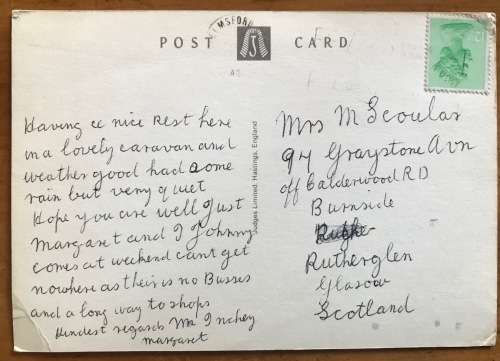 POST CARD
Having a nice Rest here
in a lovely caravan and
weather good had some
rain but very quiet
Hope you are well Just
Margaret and I Johnny
comes at weekend cant get
nowhere as their is no Busses
and a long way to shops
Kindest regards
Margaret
Judges Limited, Hastings, England
Mrs M Scoular
94 Graystone Avn
off Calderwood RD
Burnside
Rutherglen
Glascow
Scotland